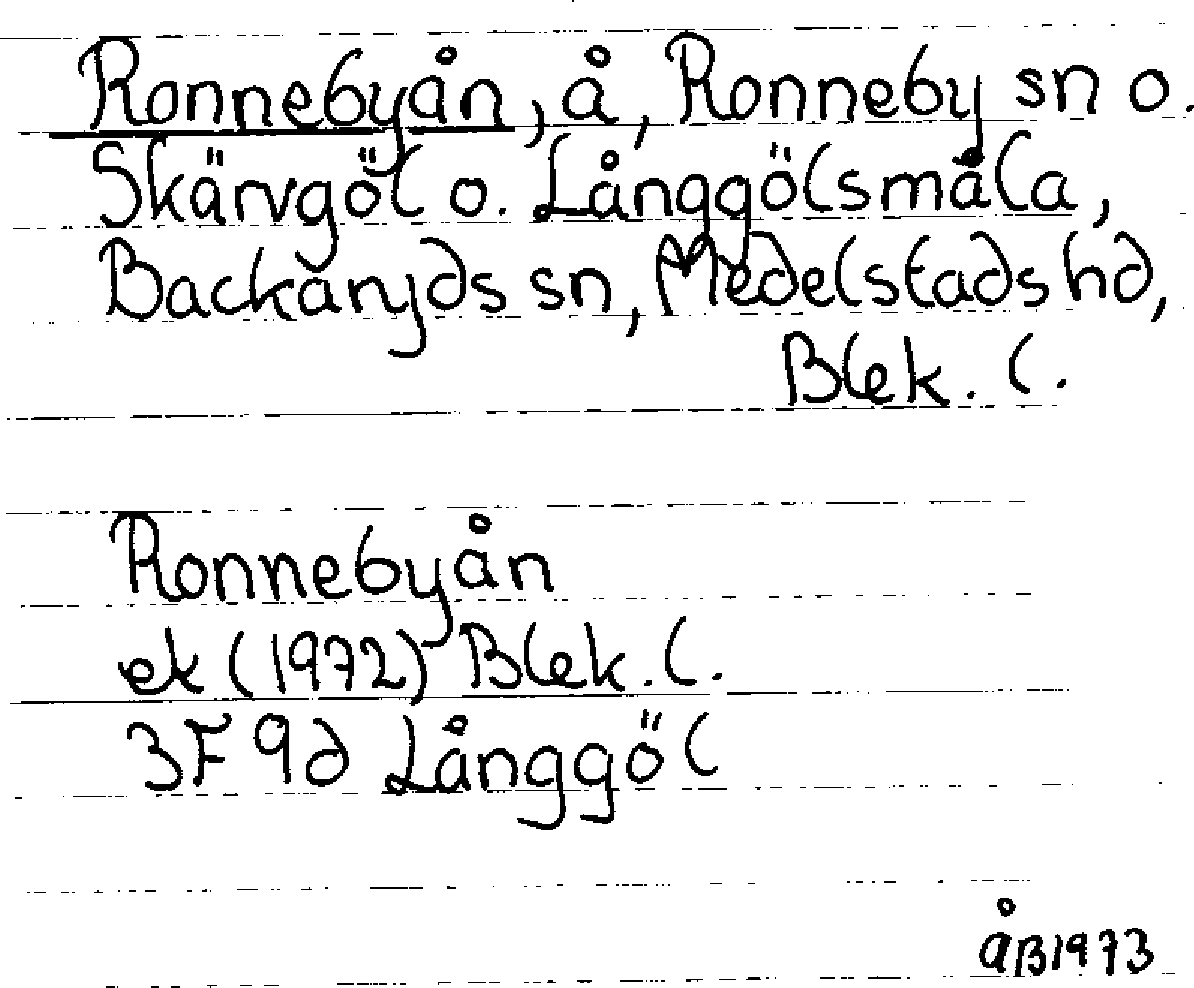 Ronnebyån, å, Ronneby sn o.
Skärvgöl o. Långgölsmåla,
Backaryds sn, Medelstads hd,
Blek. l.
Ronnebyån
ek (1972) Blek. l.
3F 9d Långgöl
ÅB 1973